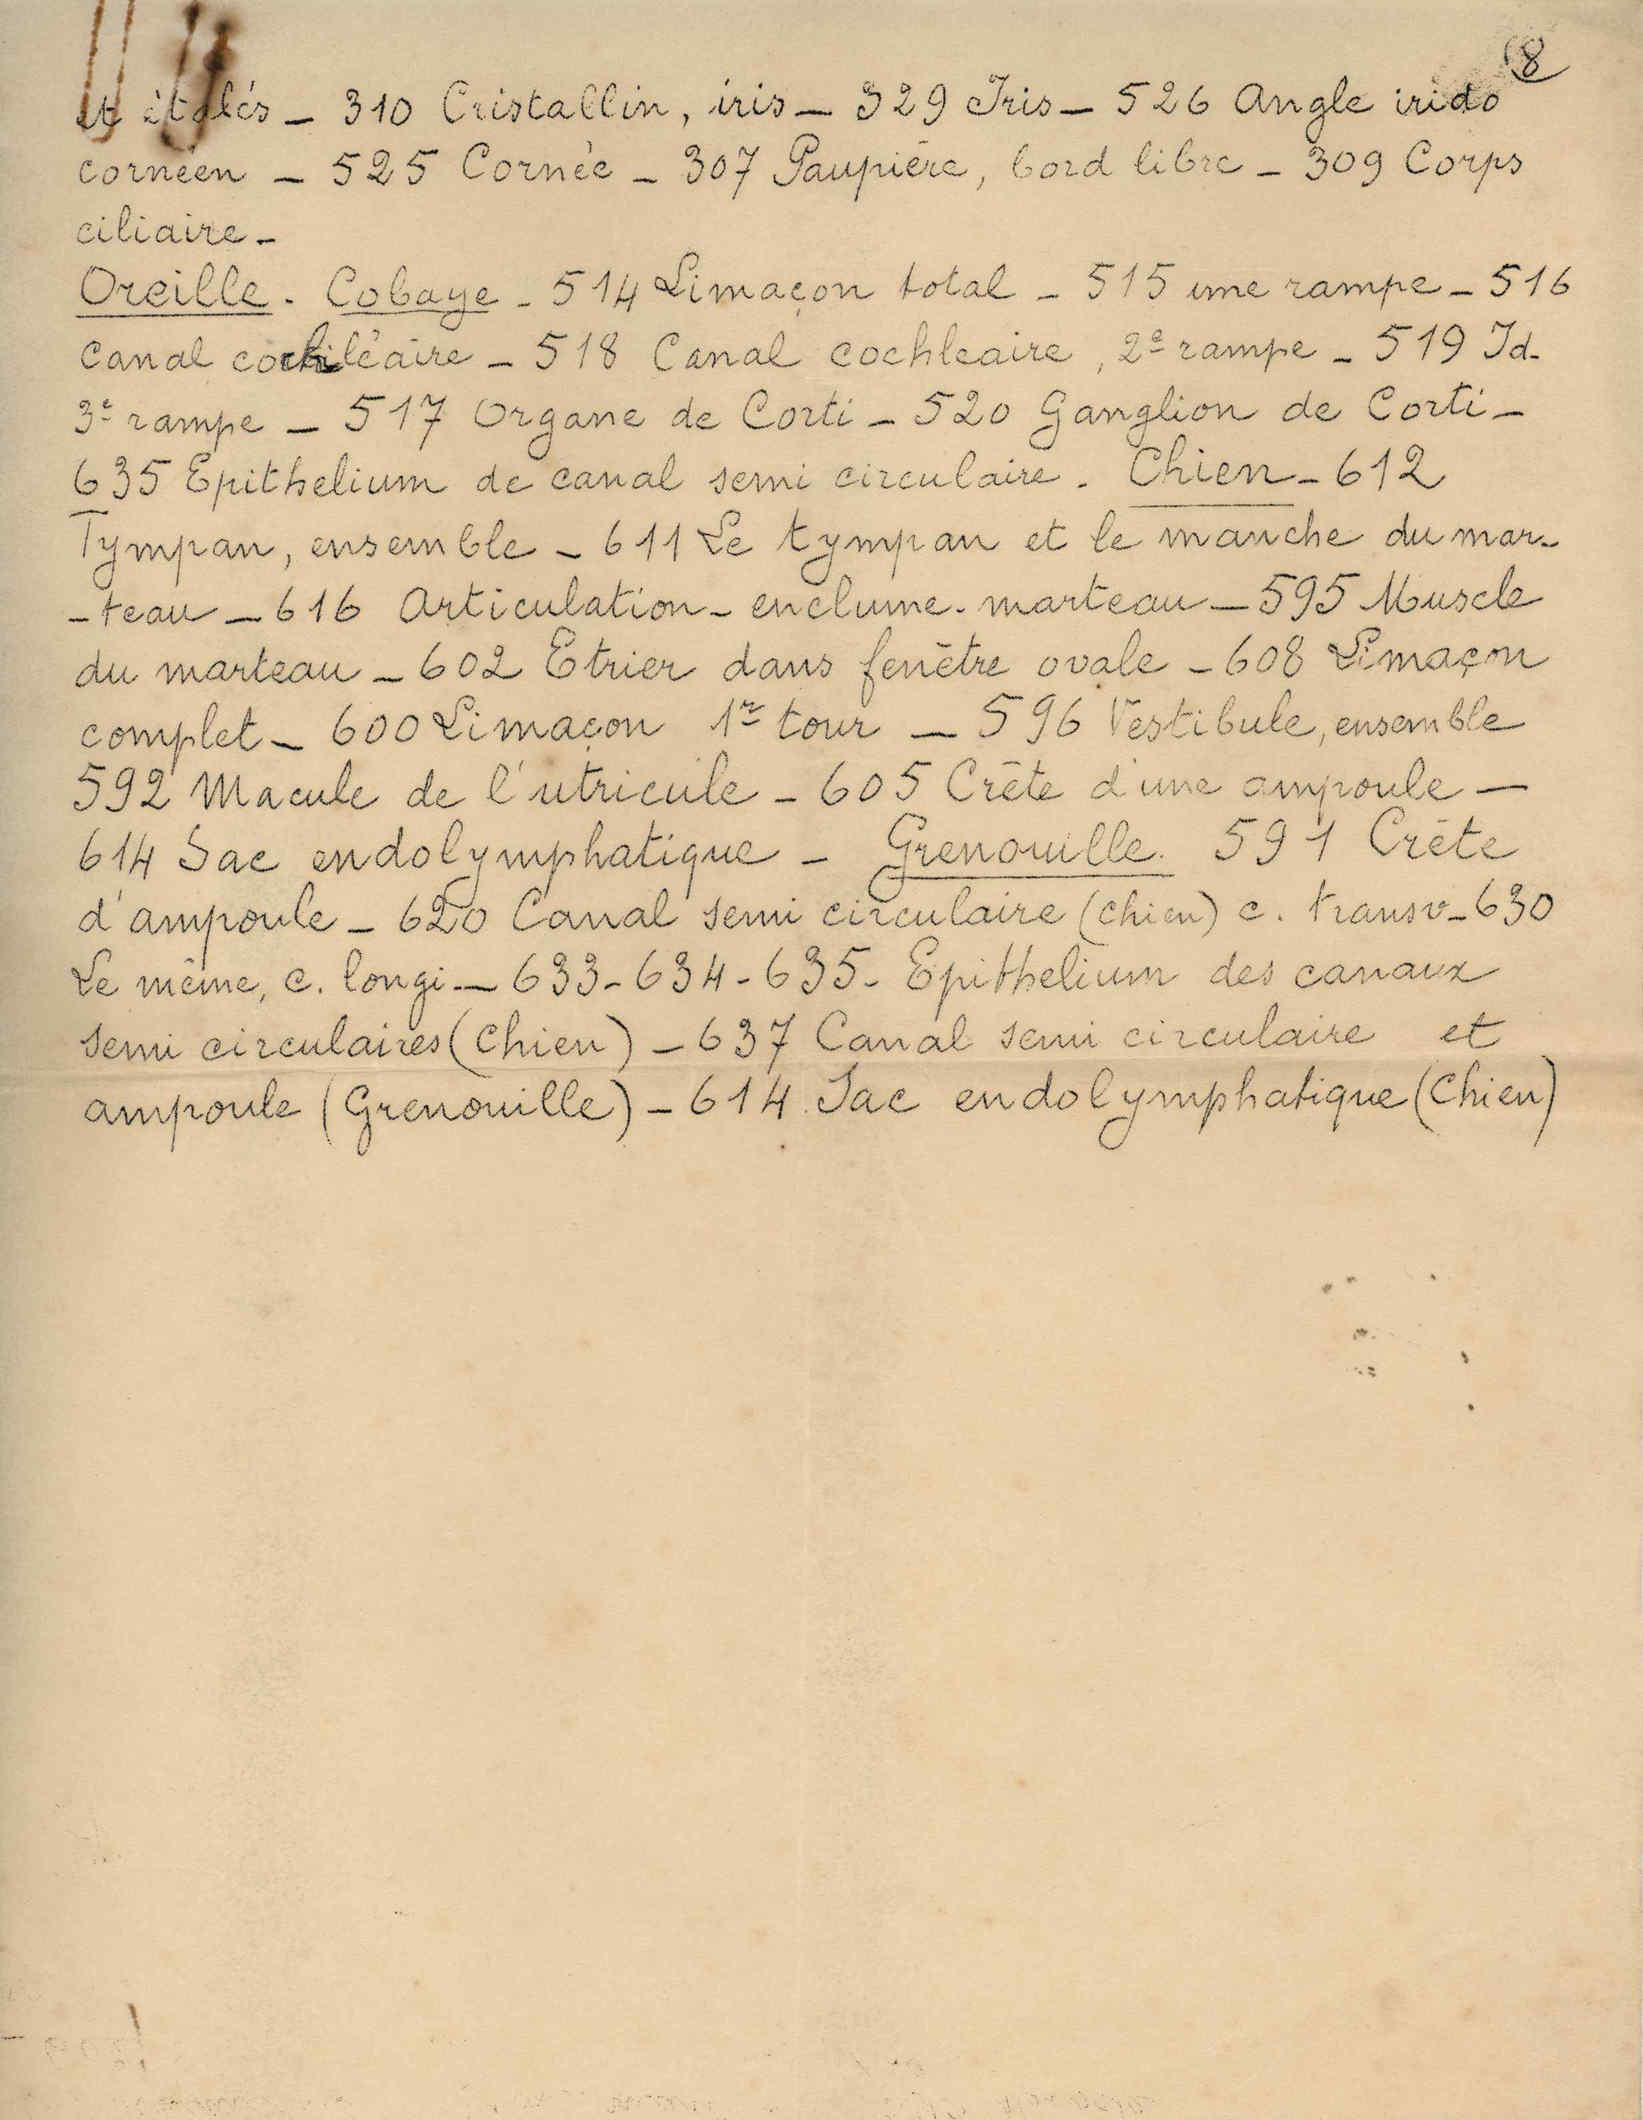 8
et étalés _ 310 Cristallin, iris _ 329 Iris _ 526 Angle irido
cornéen _ 525 Cornée _ 307 Paupière, bord libre _ 309 Corps
ciliaire _
Oreille. Cobaye _ 514 Limaçon total _ 515 une rampe _ 516
canal cochléaire _ 518 Canal cochleaire, 2e rampe _ 519 Id.
3e rampe _ 517 Organe de Corti _ 520 Ganglion de Corti _
635 Epithelium de canal semi circulaire. Chien _ 612
Tympan, ensemble _ 611 Le tympan et le manche du mar-
-teau _ 616 Articulation - enclume - marteau _ 595 Muscle
du marteau _ 602 Etrier dans fenêtre ovale _ 608 Limaçon
complet _ 600 Limaçon 1r tour _ 596 Vestibule, ensemble
592 Macule de l'utricule _ 605 Crête d'une ampoule _
614 Sac endolymphatique _ Grenouille. 591 Crête
d'ampoule _ 620 Canal semi circulaire (chien) c. transv _ 630
Le même, c. longi _ 633 - 634 - 635 - Epithelium des canaux
semi circulaires (Chien) _ 637 Canal semi circulaire et
ampoule (Grenouille) _ 614 Sac endolymphatique (Chien)